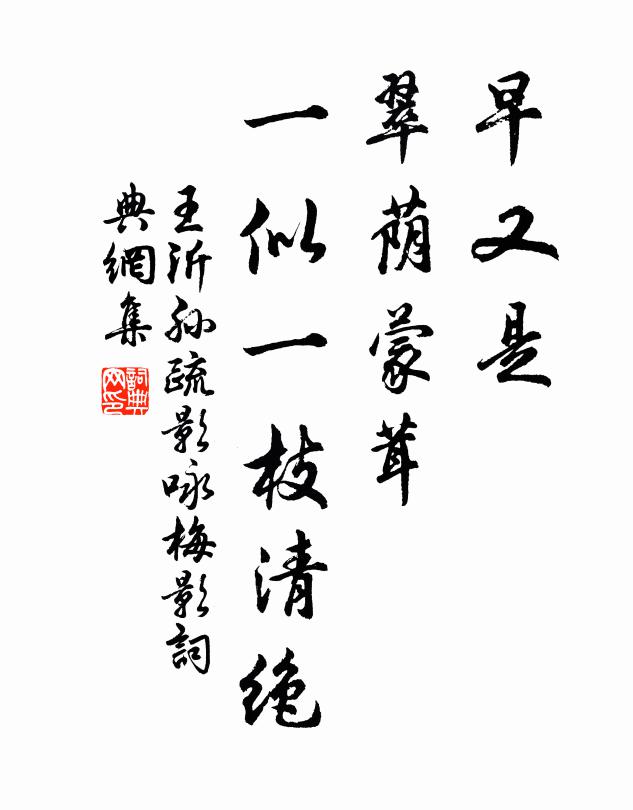 早又是
翠荫蒙茸
一似一枝清绝
王沂孙疏影咏梅影詞
典網集
詞典網印